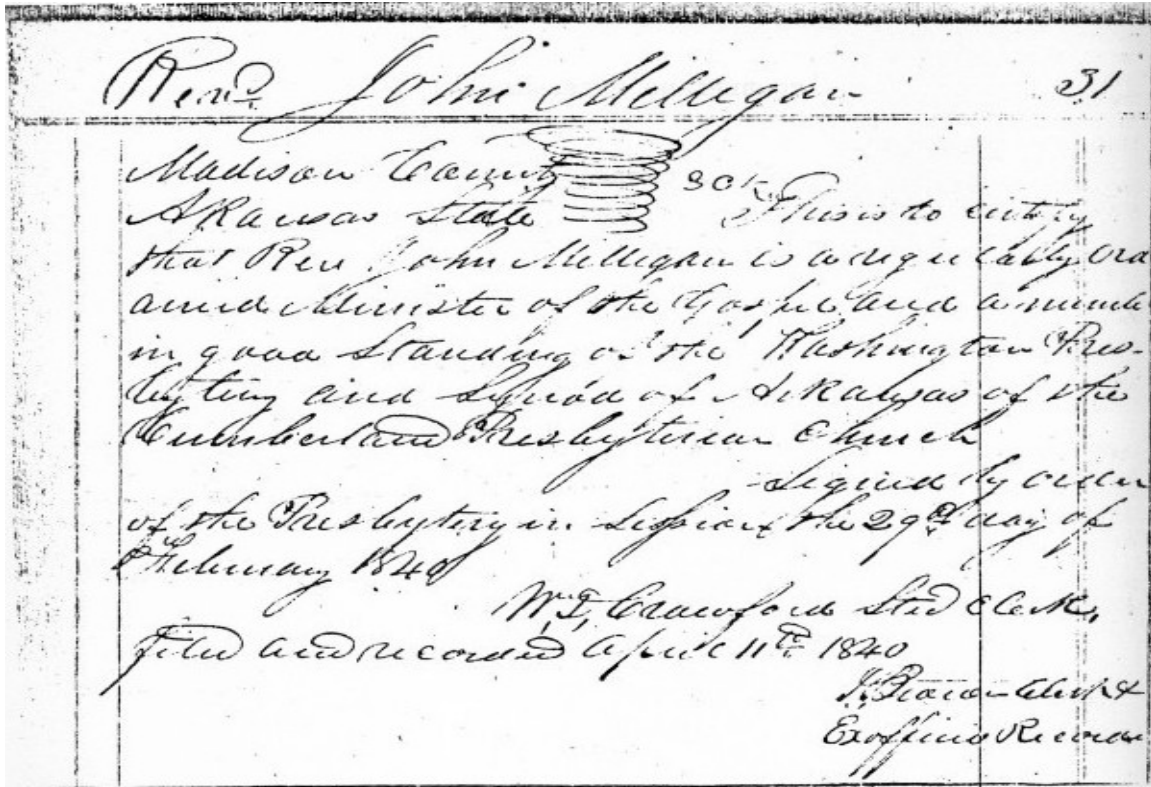 Revd. John Millegan 31
Madison County
Arkansas State This is to certify
that Rev John Millegan is a regulally ord
ained Minister of the Gospel and a membe
in good Standing of the Washington Pres-
bytery and Synod of Arkansas of the
Cumberland Presbyterian Church
Signed by order
of the Presbytery in Session the 29th day of
February 1840
Crawford Sted Clerk,
filed and recorded April 11th 1840
Clerk &
Exofficio Recorder